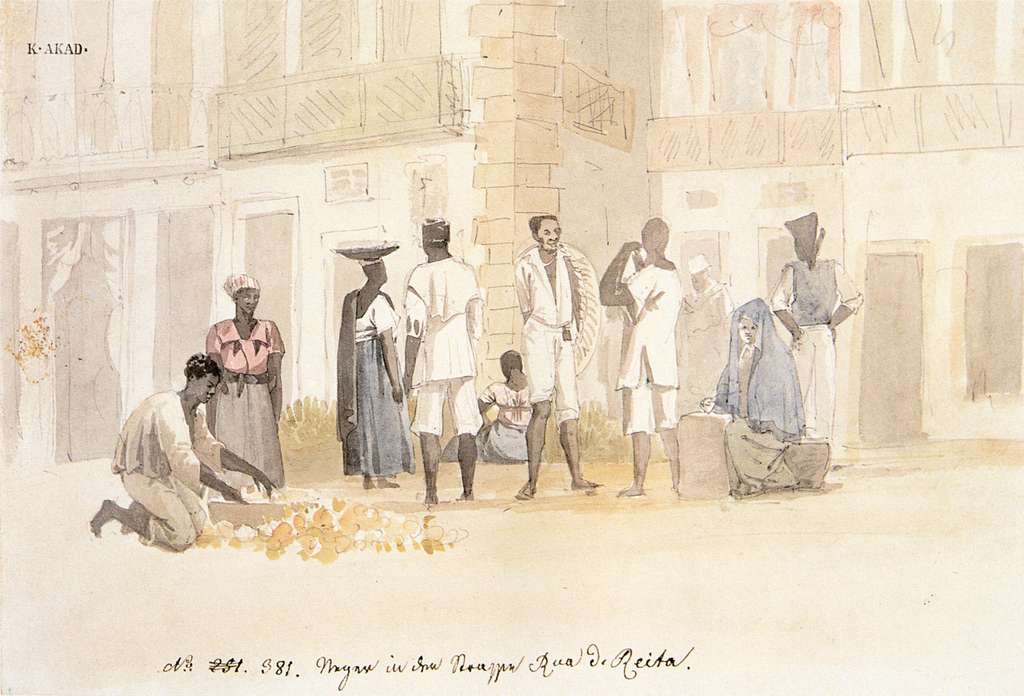 K·AKAD·
No 251. 381. Neger in der Strasse Rua d. Reita.